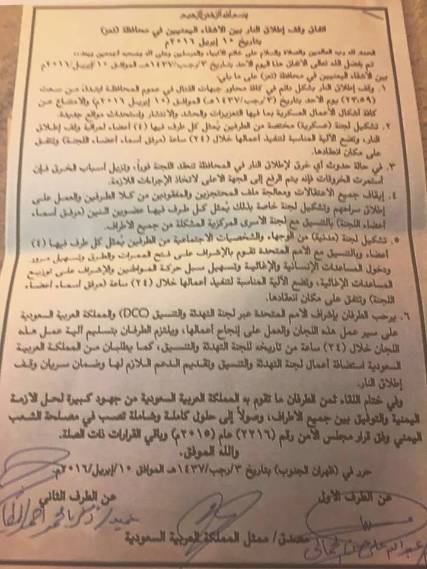 بسم الله الرحمن الرحيم
اتفاق وقف إطلاق النار بين الأشقاء اليمنيين في محافظة (تعز)
بتاريخ ١٠ إبريل ٢٠١٦م
الحمد لله رب العالمين والصلاة والسلام على خاتم الأنبياء والمرسلين وعلى آله وصحبه أجمعين
تم بفضل الله تعالى الاتفاق هذا اليوم الأحد بتاريخ ٣/رجب/١٤٣٧هـ الموافق ١٠/إبريل/٢٠١٦م
بين الأشقاء اليمنيين في محافظة (تعز) على ما يلي:
١. وقف إطلاق النار بشكل دائم في كافة محاور جبهات القتال في عموم المحافظة ابتداءً من سعت
(٢٣:٥٩) يوم الأحد بتاريخ (٣/رجب/١٤٣٧هـ) الموافق (١٠ إبريل ٢٠١٦م) والامتناع عن
كافة أشكال الأعمال العسكرية بما فيها التعزيزات والحشد والانتشار واستحداث مواقع جديدة.
٢. تشكيل لجنة (عسكرية) مختصة من الطرفين يُمثل كل طرف فيها (٤) أعضاء لمراقبة وقف إطلاق
النار، وتضع الآلية المناسبة لتنفيذ أعمالها خلال (٢٤) ساعة (مرفق أسماء أعضاء اللجنة) وتتفق
على مكان انعقادها.
٣. في حالة حدوث أي خرق لإطلاق النار في المحافظة تنعقد اللجنة فوراً، وتزيل أسباب الخرق فإن
استمرت الخروقات فإنه يتم الرفع إلى الجهة الأعلى لاتخاذ الإجراءات اللازمة.
٤. إيقاف جميع الاعتقالات ومعالجة ملف المحتجزين والمفقودين من كلا الطرفين والعمل على
إطلاق سراحهم وتشكيل لجنة خاصة بذلك يُمثل كل طرف فيها عضوين اثنين (مرفق أسماء
أعضاء اللجنة) بالتنسيق مع لجنة الأسرى المركزية المشكلة من جميع الأطراف.
٥. تشكيل لجنة (مدنية) من الوجهاء والشخصيات الاجتماعية من الطرفين يُمثل كل طرف فيها (٤)
أعضاء، وبالتنسيق مع الأمم المتحدة تقوم بالإشراف على فتح الممرات والطرق وتسهيل مرور
ودخول المساعدات الإنسانية والإغاثية وتسهيل سبل حركة المواطنين والإشراف على توزيع
المساعدات الإغاثية، وتضع الآلية المناسبة لتنفيذ أعمالها خلال (٢٤) ساعة (مرفق أسماء أعضاء
اللجنة) وتتفق على مكان انعقادها.
٦. يرحب الطرفان بإشراف الأمم المتحدة عبر لجنة التهدئة والتنسيق (DCC) والمملكة العربية السعودية
على سير عمل هذه اللجان والعمل على إنجاح أعمالها، ويلتزم الطرفان بتسليم آلية عمل هذه
اللجان خلال (٢٤) ساعة من تاريخه للجنة التهدئة والتنسيق، كما يطلبان من المملكة العربية
السعودية استضافة أعمال لجنة التهدئة والتنسيق وتقديم الدعم اللازم لها وضمان سريان وقف
إطلاق النار.
وفي ختام اللقاء ثمن الطرفان ما تقوم به المملكة العربية السعودية من جهود كبيرة لحل الأزمة
اليمنية والتوفيق بين جميع الأطراف، وصولاً إلى حلول كاملة وشاملة تصب في مصلحة الشعب
اليمني وفق قرار مجلس الأمن رقم (٢٢١٦) عام (٢٠١٥م) وباقي القرارات ذات الصلة.
والله الموفق،
حرر في (ظهران الجنوب) بتاريخ ٣/رجب/١٤٣٧هـ الموافق ١٠/إبريل/٢٠١٦م.
عن الطرف الأول
عن الطرف الثاني
مصدق/ ممثل المملكة العربية السعودية